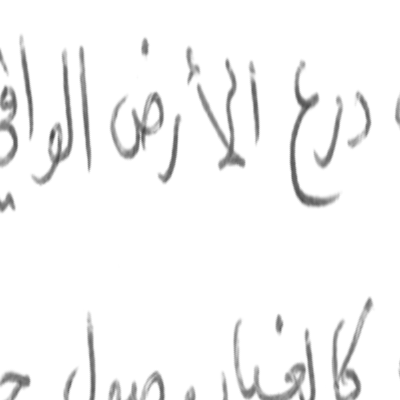 درع الأرض الواقي
كالغبار وصول